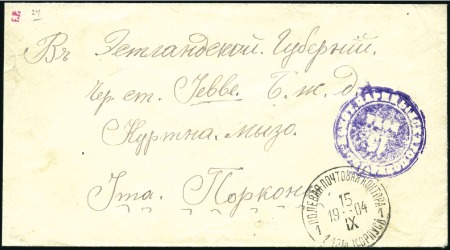 Въ Эстландской. Губерній.
Чер ст. Іевве. Б. ж. д.
Куртна. мызо.
Ита. Поркони
ПОЛЕВАЯ ПОЧТОВАЯ КОНТОРА
15
19 04
IX
1 1
КОРПУСА